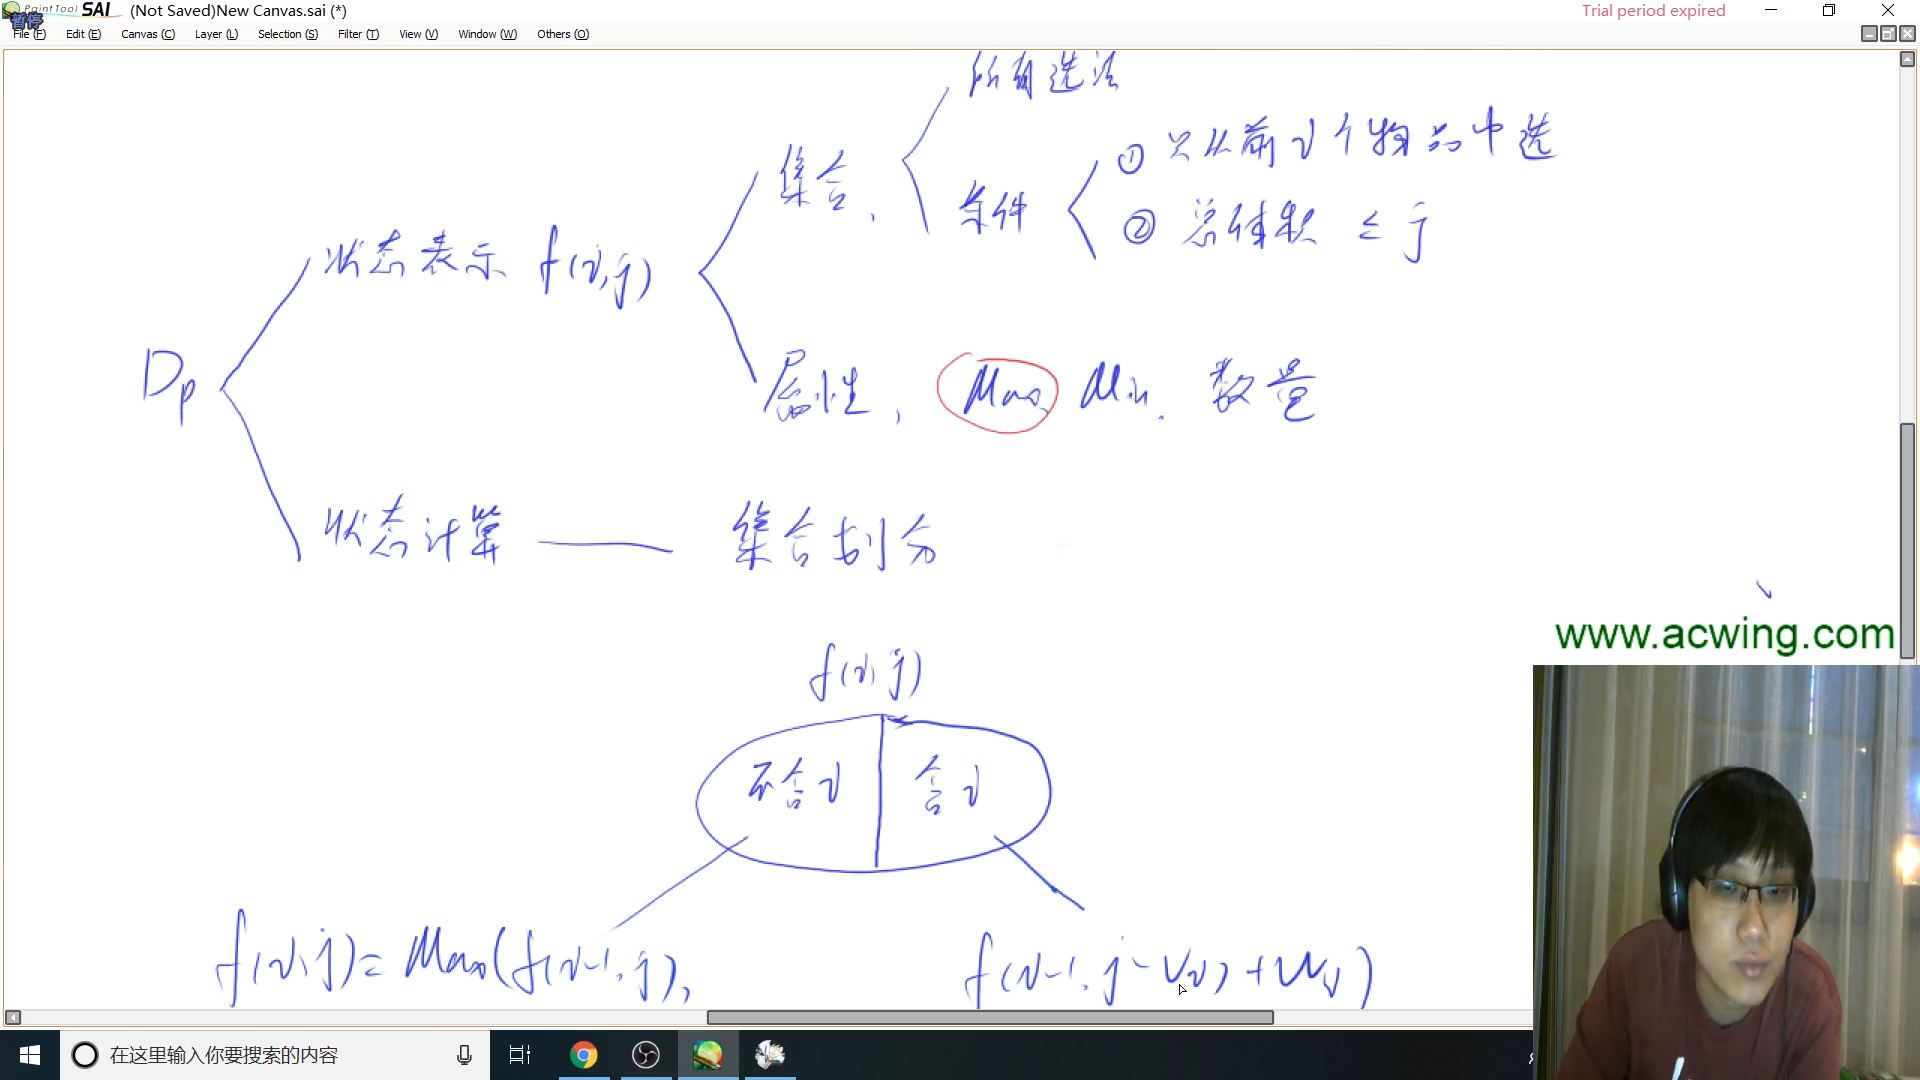 PaintTool SAI (Not Saved)New Canvas.sai (*) Trial period expired
暂停
File (F) Edit (E) Canvas (C) Layer (L) Selection (S) Filter (T) View (V) Window (W) Others (O)
所有选法
① 只从前i个物品中选
集合,
条件
② 总体积 ≤ j
状态表示 f(i,j)
Dp
属性, Max, Min. 数量
状态计算 —— 集合划分
www.acwing.com
f(i,j)
不含i 含i
f(i,j)= Max(f(i-1,j), f(i-1, j-vi)+wi)
在这里输入你要搜索的内容